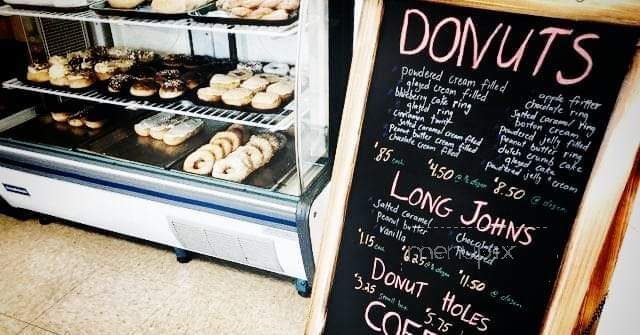 DONUTS
powdered cream filled
glazed cream filled
blueberry cake ring
glazed ring
cinnamon twist
salted caramel cream filled
Peanut butter cream filled
chocolate cream filled
apple fritter
chocolate ring
Salted caramel ring
Boston cream
powdered jelly filled
peanut butter ring
dutch crumb cake
glazed cake
powdered jelly & cream
$.85 each $4.50 @ ½ dozen $8.50 @ dozen
LONG JOHNS
Salted caramel
peanut butter
vanilla
chocolate
powdered
$1.15 each $6.25 @ ½ dozen $11.50 @ dozen
menupix
DONUT HOLES
$3.25 small box $5.75